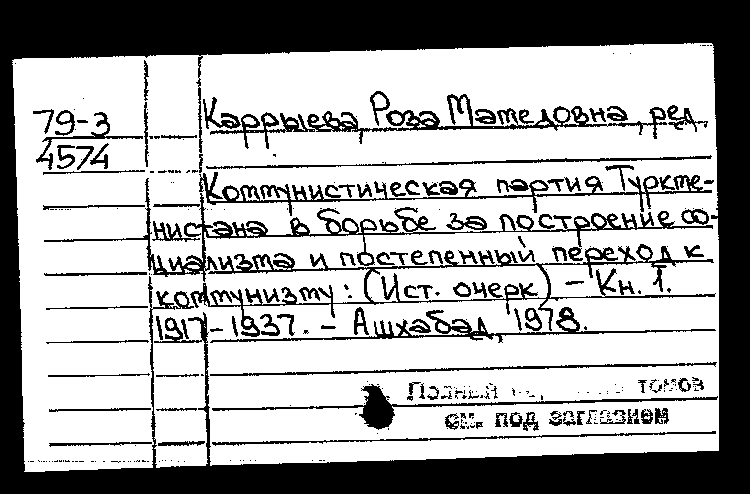 79-3
4574
Каррыева, Роза Мамедовна, ред.
Коммунистическая партия Туркме-
нистана в борьбе за построение со-
циализма и постепенный переход к
коммунизму: (Ист. очерк) – Кн. 1.
1917-1937. – Ашхабад, 1978.
Полный томов
см. под заглавием